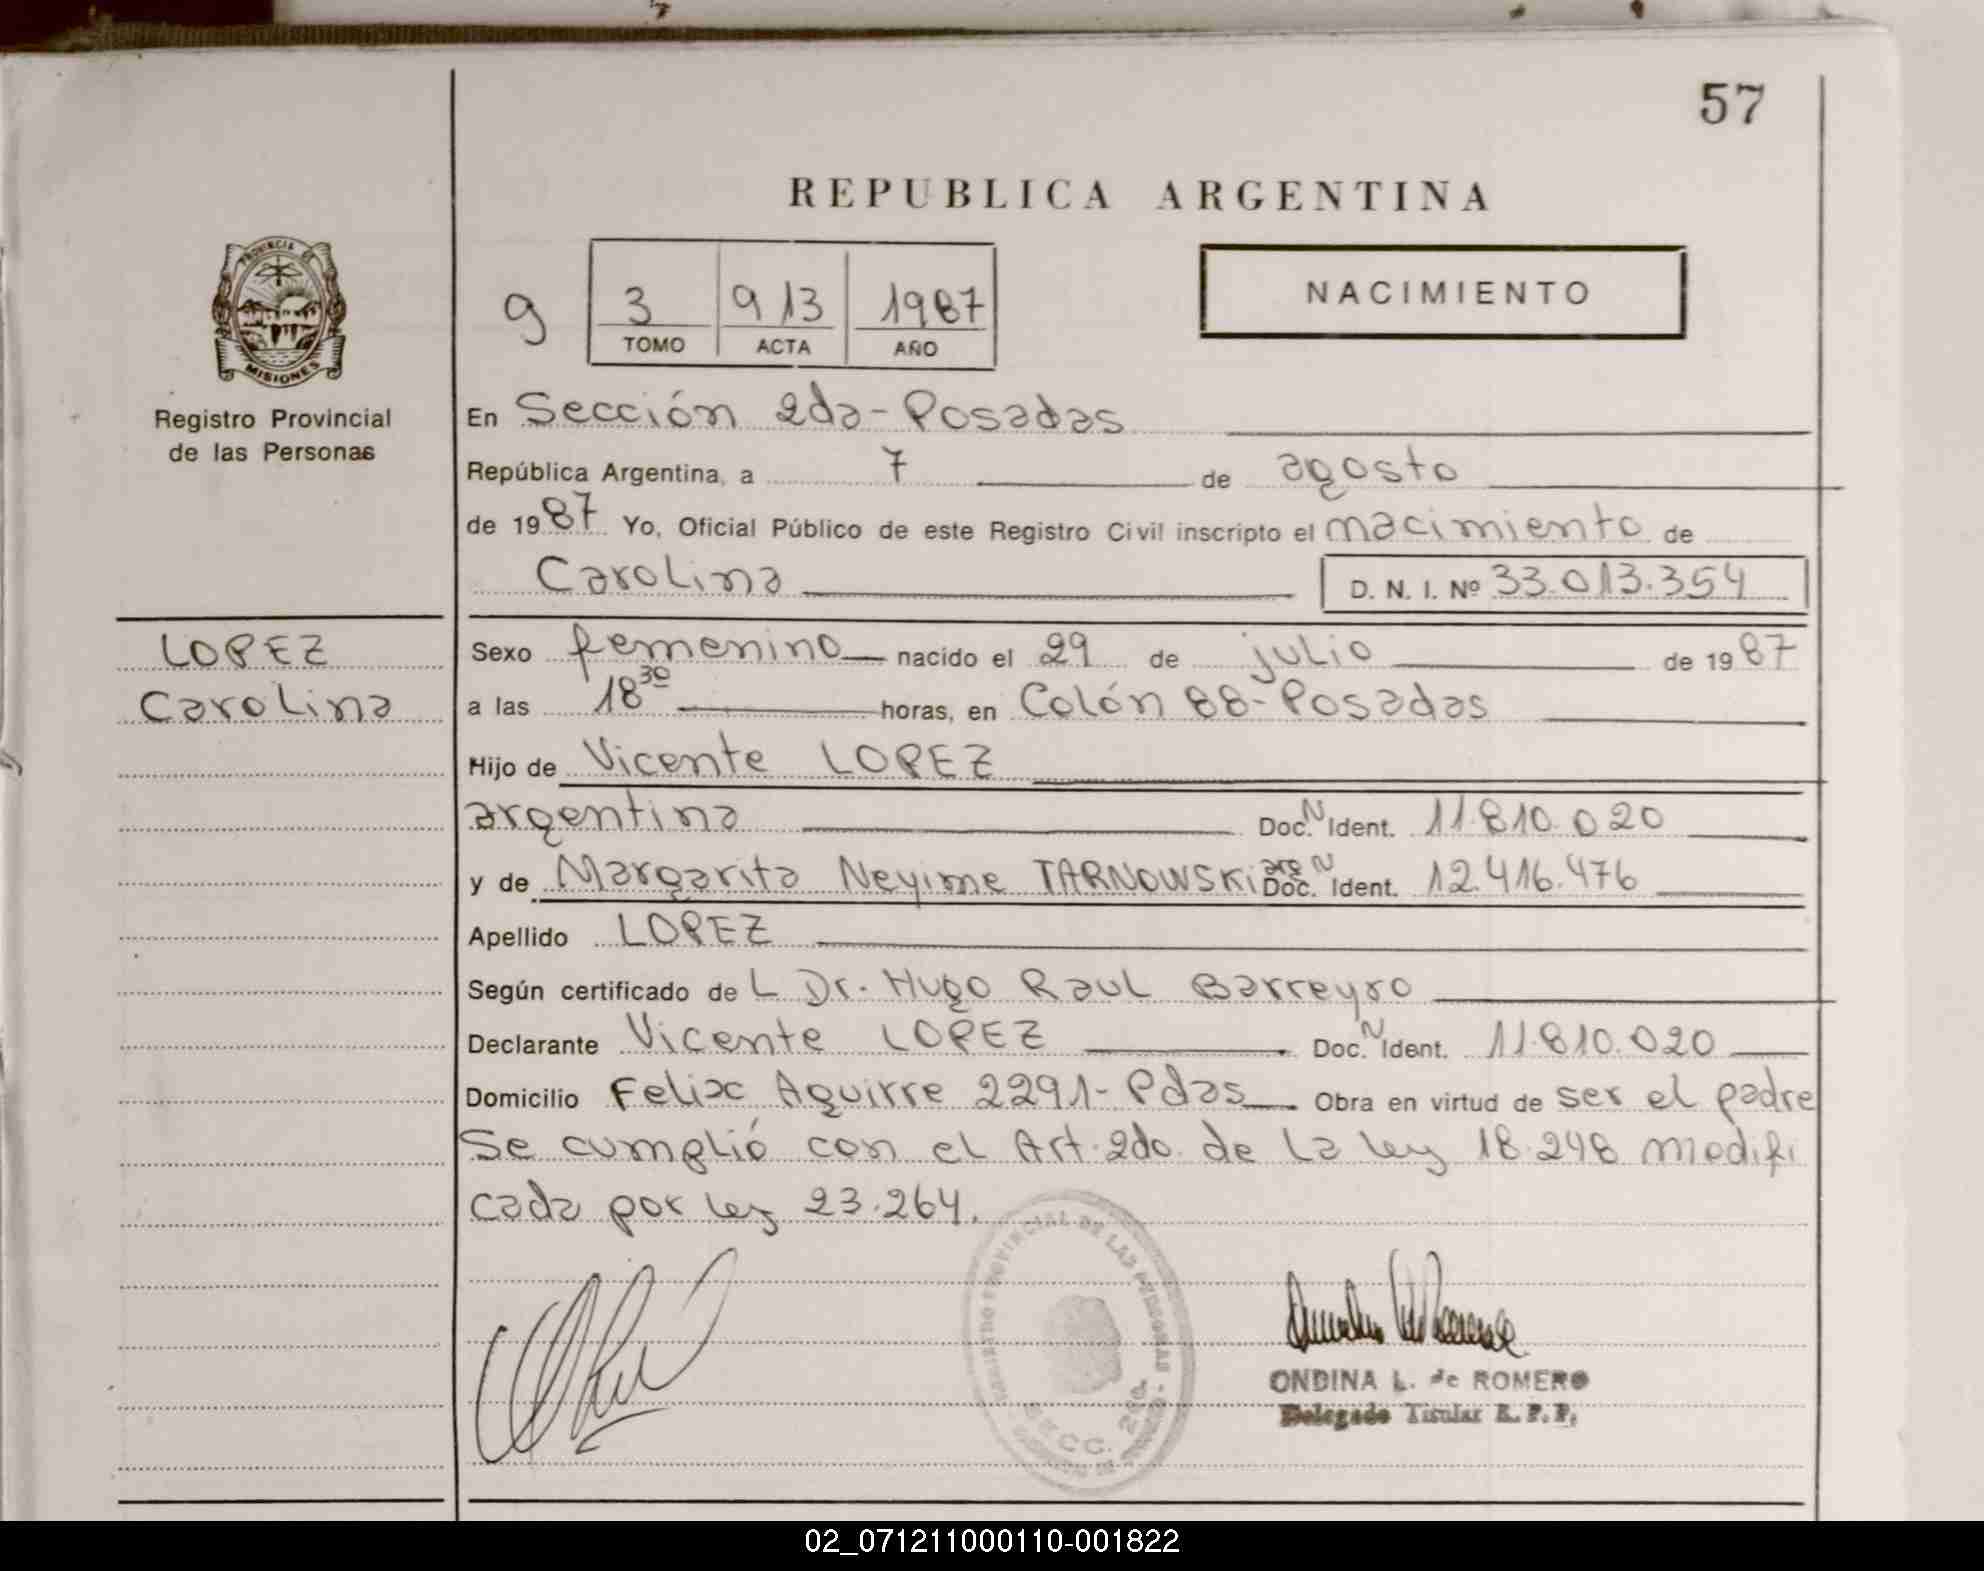 57
REPUBLICA ARGENTINA
PROVINCIA DE
MISIONES
Registro Provincial
de las Personas
NACIMIENTO
g 3 913 1987
TOMO ACTA AÑO
En Sección 2da - Posadas
República Argentina, a 7 de agosto
de 1987 Yo, Oficial Público de este Registro Civil inscripto el nacimiento de
Carolina D. N. I. Nº 33.013.354
LOPEZ
Carolina
Sexo femenino nacido el 29 de julio de 1987
a las 18 30 horas, en Colón 88 - Posadas
Hijo de Vicente LOPEZ
argentina Doc. N Ident. 11.810.020
y de Margarita Neyime TARNOWSKI arg N Doc. Ident. 12.416.476
Apellido LOPEZ
Según certificado de L Dr. Hugo Raul Barreyro
Declarante Vicente LOPEZ Doc. N Ident. 11.810.020
Domicilio Felix Aguirre 2291 - Pdas Obra en virtud de ser el padre
Se cumplió con el Art. 2do. de la ley 18.248 modifi
cada por ley 23.264.
PROVINCIAL DE LAS PERSONAS
SECC. 2da.
ONDINA L. de ROMERO
Delegado Titular R. P. P.
02_071211000110-001822